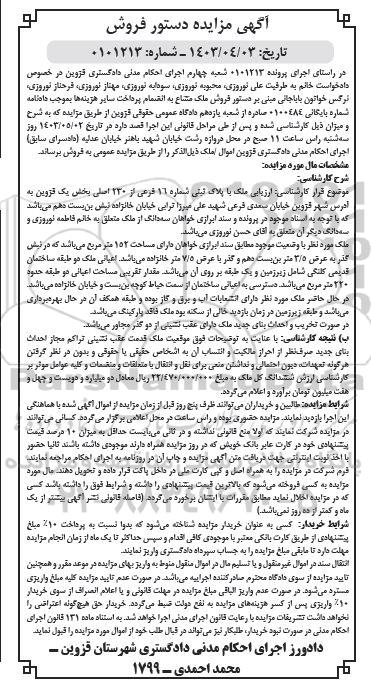 آگهی مزایده دستور فروش
تاریخ: ۱۴۰۳/۰۴/۰۳ ـ شماره: ۰۱۰۱۲۱۳
در راستای اجرای پرونده ۰۱۰۱۲۱۳ شعبه چهارم اجرای احکام مدنی دادگستری قزوین در خصوص
دادخواست خانم به طرفیت علی نوروزی، محبوبه نوروزی، سودابه نوروزی، مهناز نوروزی، فرحناز نوروزی،
نرگس خواتون باباجانی مبنی بر دستور فروش ملک مشاع به انضمام پرداخت سایر هزینه‌ها بموجب دادنامه
شماره بایگانی ۰۱۰۰۴۸۴ صادره از شعبه یازدهم دادگاه عمومی حقوقی قزوین از طریق مزایده که به شرح
و میزان ذیل کارشناسی شده و پس از طی مراحل قانونی این اجرا قصد دارد در تاریخ ۱۴۰۳/۰۵/۰۲ روز
سه‌شنبه راس ساعت ۱۱ صبح در محل دروازه رشت خیابان شهید باهنر خیابان عدلیه (دادسرای سابق)
اجرای احکام مدنی دادگستری قزوین اموال /ملک ذیل‌الذکر را از طریق مزایده عمومی به فروش برساند.
مشخصات مال مورد مزایده:
شرح کارشناسی:
موضوع قرار کارشناسی: ارزیابی ملک با پلاک ثبتی شماره ۱۶ فرعی از ۲۳۰ اصلی بخش یک قزوین به
آدرس شهر قزوین خیابان سعدی فرعی شهید علی میرزا ترابی خیابان خانزاده نبش بن‌بست دهم می‌باشد
که با توجه به اسناد موجود در پرونده و سند ابرازی خواهان سه‌دانگ از ملک متعلق به خانم فاطمه نوروزی و
سه‌دانگ دیگر آن متعلق به آقای حسن نوروزی می‌باشد.
ملک مورد نظر با وضعیت موجود مطابق سند ابرازی خواهان دارای مساحت ۱۵۲ متر مربع می‌باشد که در نبش
گذر به عرض ۳/۵ متر بن‌بست دهم و گذر با عرض ۷/۵ متر خانزاده می‌باشد. اعیانی ملک دو طبقه ساختمان
قدیمی کلنگی شامل زیرزمین و یک طبقه بر روی آن می‌باشد. مقدار تقریبی مساحت اعیانی دو طبقه حدود
۲۲۰ متر مربع می‌باشد. دسترسی به اعیانی ساختمان از سمت حیاط کوچه بن‌بست و خیابان خانزاده می‌باشد.
در حال حاضر ملک مورد نظر دارای انشعابات آب و برق و گاز بوده و طبقه همکف آن در حال بهره‌برداری
می‌باشد و طبقه زیرزمین در زمان بازدید خالی از سکنه بود ملک فاقد پارکینگ می‌باشد.
در صورت تخریب و احداث بنای جدید ملک دارای عقب نشینی از دو گذر مجاور می‌باشد.
ب) نتیجه کارشناسی: با عنایت به توضیحات فوق موقعیت ملک قدمت عقب نشینی تراکم مجاز احداث
بنای جدید صرف‌نظر از احراز مالکیت و انتساب آن به اشخاص حقیقی یا حقوقی و بدون در نظر گرفتن
هرگونه تعهدات، دیون احتمالی و نداشتن منعی برای نقل و انتقال با متعلقات و منضمات و کلیه عوامل موثر بر
کارشناسی ارزش ششدانگ کل ملک به مبلغ ۲۲/۴۷۰/۰۰۰/۰۰۰ ریال معادل دو میلیارد و دویست و چهل و
هفت میلیون تومان برآورد و اعلام می‌گردد.
شرایط مزایده: طالبین و خریداران می‌توانند ظرف پنج روز قبل از زمان مزایده از اموال آگهی شده با هماهنگی
این اجرا بازدید نمایند. مزایده حضوری بوده و راس ساعت در محل اعلامی برگزار می‌گردد. کسانی می‌توانند
در مزایده شرکت نمایند که اولا منع قانونی نداشته و در ثانی می‌بایست حداقل به میزان ۱۰ درصد قیمت
پیشنهادی خود در کارت عابر بانک خویش که در روز مزایده همراه دارند موجودی داشته باشند ثالثا حضور
با اخذ نوبت اینترنتی جهت دریافت متن آگهی مزایده و چاپ آن در روزنامه به اجرای احکام مراجعه نمایند.
فرم شرکت در مزایده را به همراه اصل و کپی کارت ملی در داخل پاکت قرار داده و تحویل دهند. مال مورد
مزایده به کسی فروخته می‌شود که بالاترین قیمت پیشنهادی را داشته و شرایط فوق را داشته باشد کسی
که در مزایده اخلال نماید مطابق مقررات با ایشان برخورد می‌گردد. (فاصله قانونی نشر آگهی بیشتر از یک
ماه و کمتر از ده روز نمی‌باشد.)
شرایط خریدار: کسی به عنوان خریدار مزایده شناخته می‌شود که بدوا نسبت به پرداخت ۱۰٪ مبلغ
پیشنهادی از طریق کارت بانکی معتبر با موجودی کافی اقدام و سپس حداکثر تا یک ماه از زمان انجام مزایده
مهلت دارد تا مابقی مبلغ مزایده را به حساب سپرده دادگستری واریز نمایند.
انتقال سند در اموال غیرمنقول و یا تسلیم مال در اموال منقول منوط به واریز بهای مزایده در موعد مقرر و همچنین
تایید مزایده از سوی دادگاه محترم صادرکننده اجراییه می‌باشد. در صورت عدم تایید مزایده کلیه مبلغ واریزی
مسترد می‌شود. در صورت عدم واریز الباقی مبلغ مزایده در مهلت قانونی و یا اعلام انصراف از سوی خریدار
۱۰٪ واریزی پس از کسر هزینه‌های مزایده به نفع دولت ضبط می‌گردد. خریدار حق هیچ‌گونه اعتراضی را
نخواهد داشت تشریفات مزایده با رعایت قانون اجرای مدنی اجرا خواهد شد. به استناد ماده ۱۳۱ قانون اجرای
احکام مدنی در صورت نبود خریدار، طلبکار نیز می‌تواند در قبال طلب خود از اموال مورد مزایده را قبول نماید.
دادورز اجرای احکام مدنی دادگستری شهرستان قزوین ـ
محمد احمدی ـ ۱۷۹۹